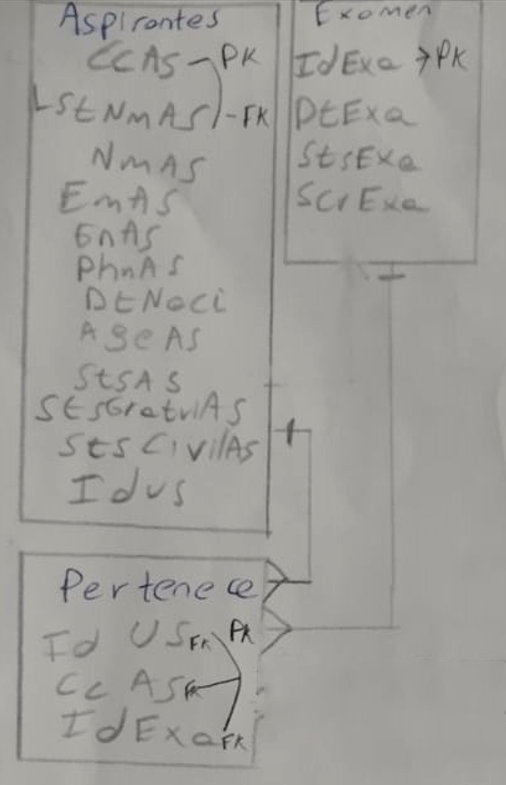 Aspirantes
CCAS PK
LStNmAS -FK
NmAS
EmAS
GnAS
PhnAS
DtNaci
AgeAS
StsAS
StsGratuiAS
StsCivilAS
IdUS
Examen
IdExa → PK
DtExa
StsExa
ScrExa
Pertenece
Id US FK PK
Cc AS FK
IdExa FK